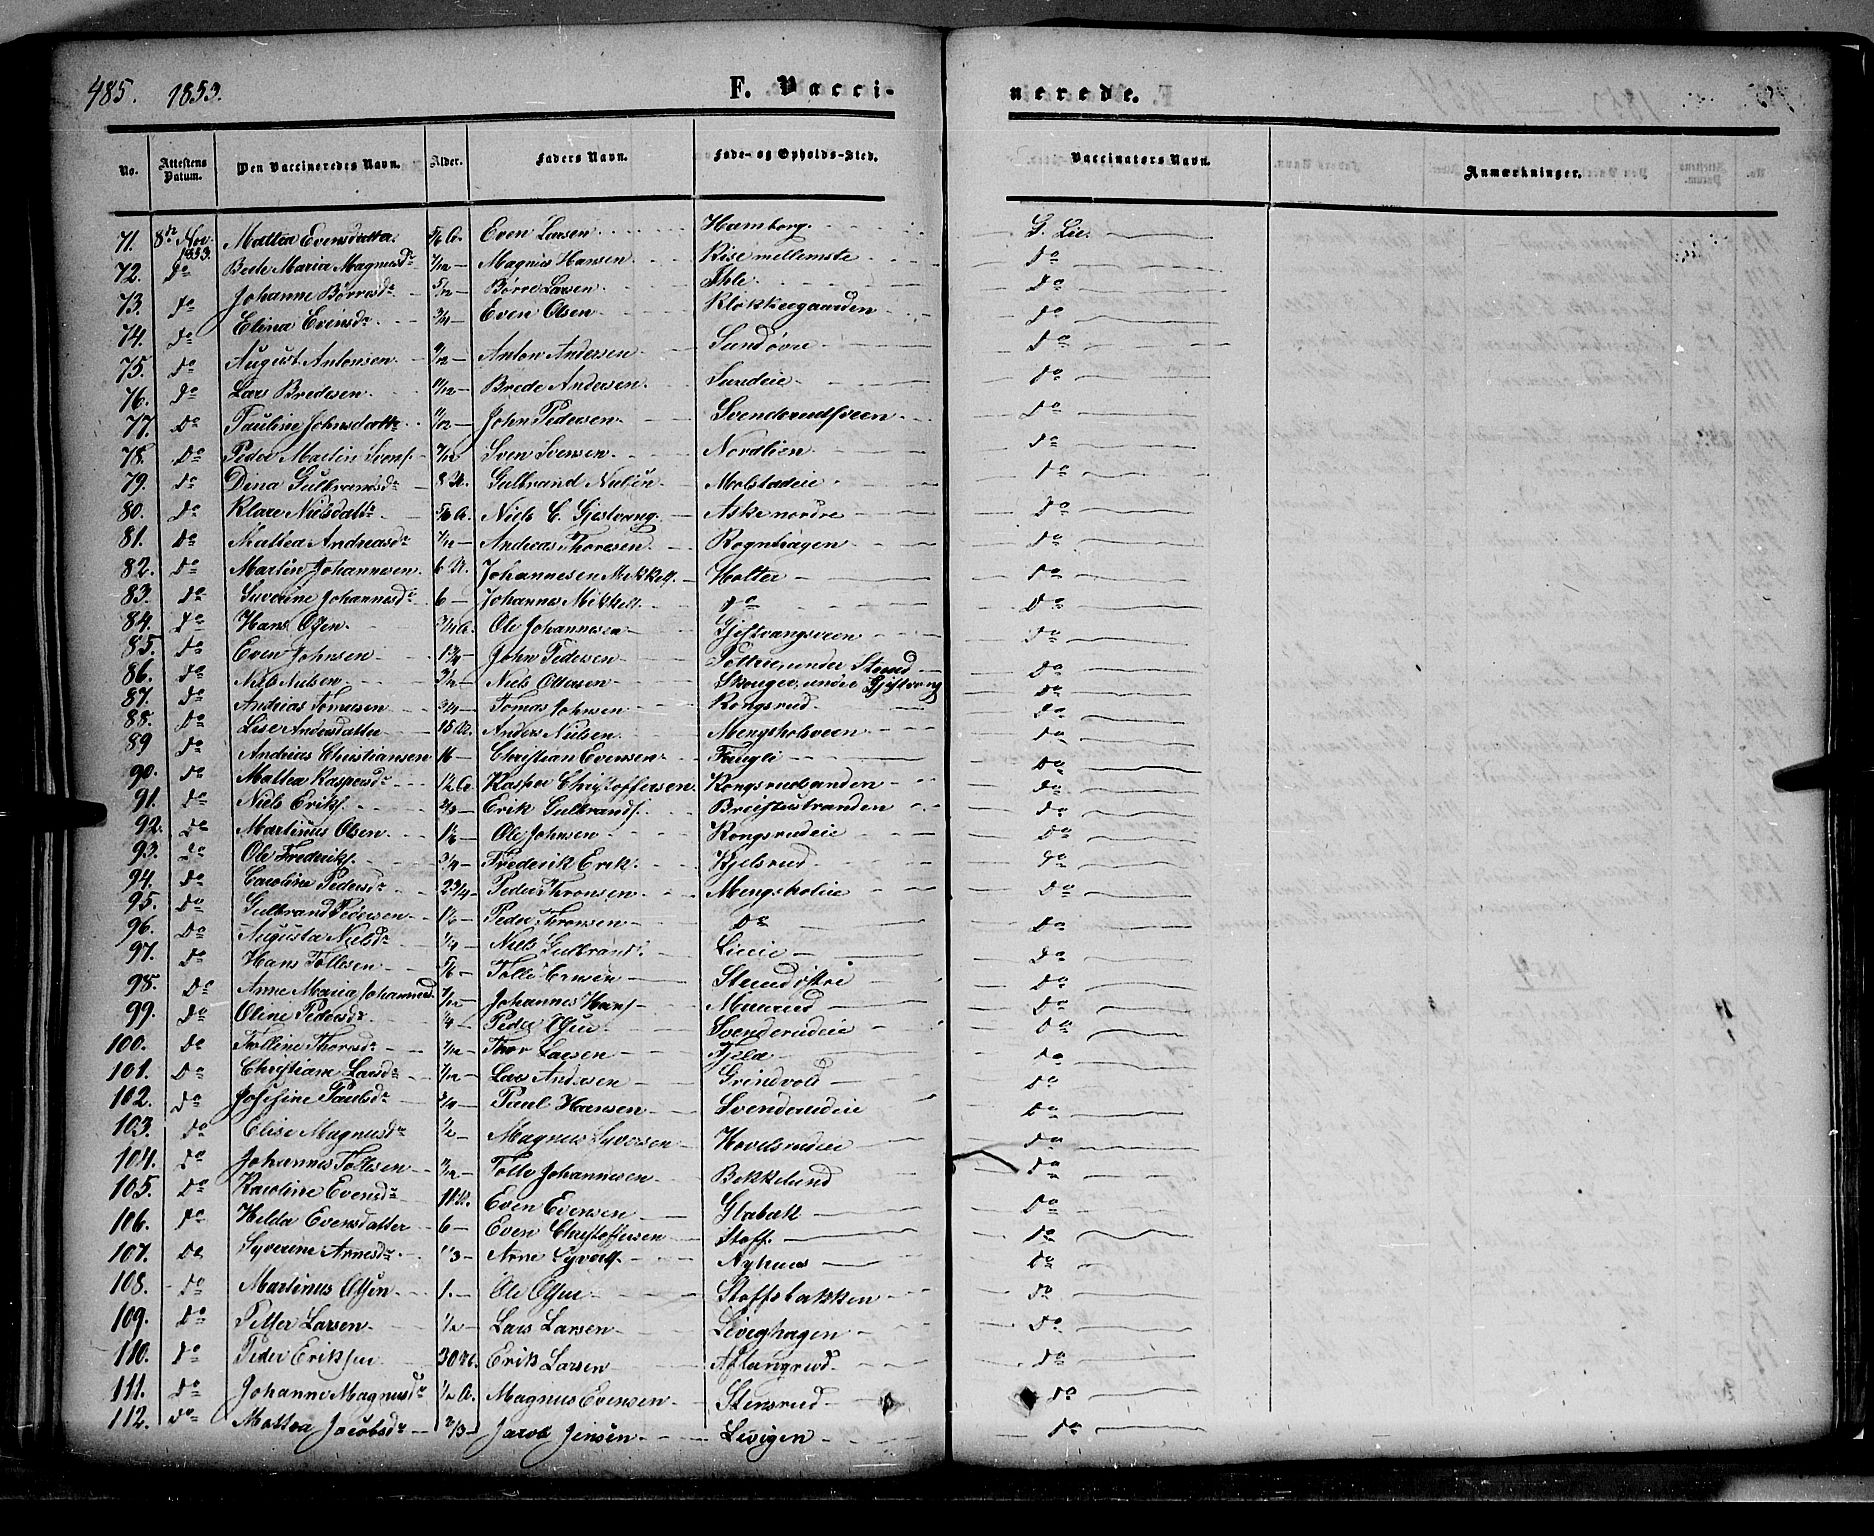 485. 1853. F. Vacci- nerede.
No. Attestens Datum. Den Vaccineredes Navn. Alder. Faders Navn. Føde- og Opholds-Sted. Vaccinators Navn. Anmærkninger.
71. 8de Nov. 1853. Mattea Evensdatter. 5/6 A. Even Larsen Hamborg. G. Lie.
72. Do Bode Maria Magnusdr 7/12 Magnus Hansen Rise mellemste Do
73. Do Johanne Børresdr 5/12 Børre Larsen Ihle Do
74. Do Elina Evensdr 3/4 Even Olsen Klokkergaarden Do
75. Do August Antonsen 9/12 Anton Andersen Sundøvre Do
76. Do Lars Bredesen 11/12 Brede Andersen Sundeie Do
77. Do Pauline Johnsdattr John Pedersen Svenderudsveen Do
78. Do Peder Martin Svens. 7/12 Sven Svensen Nordlien Do
79. Do Dina Gulbransdr 8 Gulbrand Nielsen Molstadeie Do
80. Do Klare Nielsdattr 5/6 A. Niels C. Gjestvang Aske nordre Do
81. Do Mattea Andreasdr 7/12 Andreas Thoresen Rognhaugen Do
82. Do Martin Johannesen 6 Johannesen Mikkels. Holter Do
83. Do Severine Johannesdr 6 Johannes Mikkels. Do Do
84. Do Hans Olsen 3/4 A. Ole Johannesen Gjestvangsveen Do
85. Do Even Johnsen 1 3/4 John Pedersen under Steend Do
86. Do Niels Nielsen Niels Ottersen Skouger, under Gjestvang Do
87. Do Andreas Tomesen 3/4 Tomas Johnsen Rongsrud Do
88. Do Lise Andersdatter 18 Anders Nielsen Mengsholsveen Do
89 Do Andreas Christiansen 16 Christian Evensen Fougli Do
90. Do Mattea Kaspersdr Kasper Christoffersen Kongsrudsanden Do
91. Do Niels Eriks. 2/3 Erik Gulbrands. Breistustranden Do
92. Do Martinus Olsen 1 1/2 Ole Johnsen Kongsrudeie Do
93. Do Ole Frederiks. 3/4 Frederik Erik. Kjelsrud Do
94. Do Caroline Pedersdr 2 3/4 Peder Thronsen Mengsholeie Do
95. Do Gulbrand Pedersen 1 1/2 Peder Thronsen Do Do
96. Do Augusta Nielsdr Niels Gulbrands. Lieeie Do
97. Do Hans Tollesen 5/6 Tolle Steend østre Do
98. Do Anne Maria Johannesd. 7/12 Johannes Hans. Maurud Do
99. Do Oline Pedersdr 1/4 Peder Olsen Svenderudeie Do
100. Do Tolline Thorsdr 7/12 Thor Larsen Fjeld Do
101. Do Christiane Larsdr 7/12 Lars Andersen Grindvold Do
102. Do Josefine Paulsdr 3/4 Paul Hansen Svenderudeie Do
103. Do Elise Magnusdr 1/2 Magnus Syversen Hovelsrudeie Do
104. Do Johannes Tollesen Tolle Johannesen Bekkelund Do
105. Do Karoline Evensdr Even Evensen Glabak Do
106. Do Helda Evensdatter 6 Even Christoffersen Stoff. Do
107. Do Syverine Arnesdr 1/3 Arne Syvers. Nyhuus Do
108. Do Martinus Olsen 1. Ole Olsen Stoffsbakken Do
109. Do Petter Larsen 1/2 Lars Larsen Levighagen Do
110. Do Peder Eriksen 30 Erik Larsen Aslangrud Do
111. Do Johanne Magnusdr 1/2 A. Magnus Evensen Stensrud Do
112. Do Mattea Jacobsdr 2/3 Jacob Jensen Levigen Do